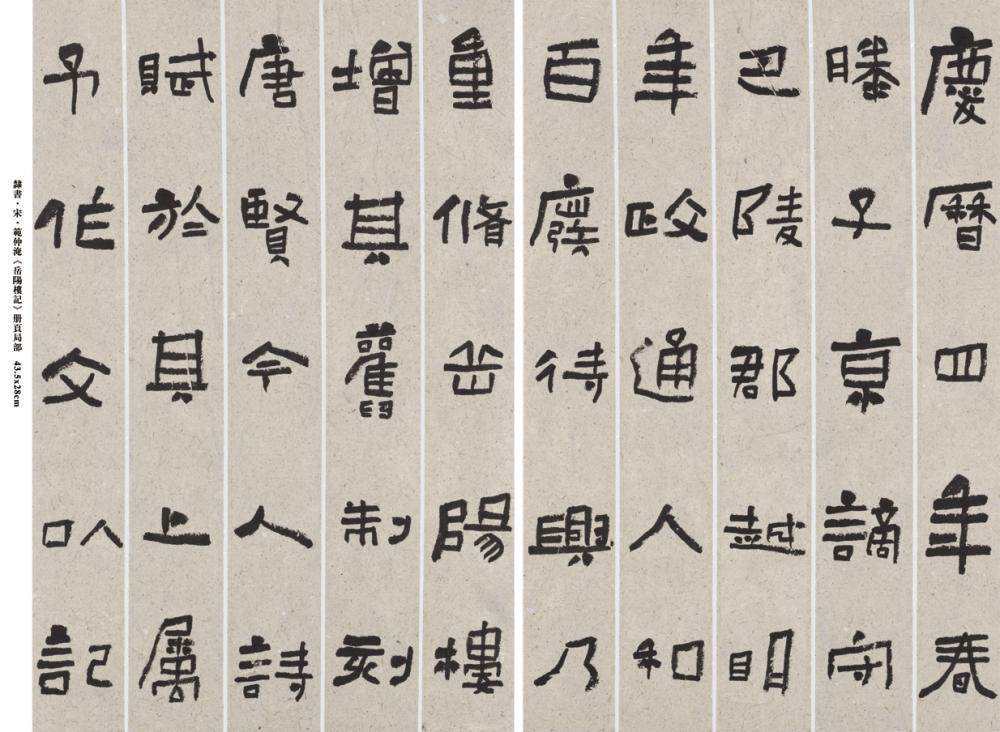 慶曆四年春
滕子京謫守
巴陵郡越明
年政通人和
百廢待興乃
重脩岳陽樓
增其舊制刻
唐賢今人詩
賦於其上属
予作文以記
隸書·宋·範仲淹《岳陽樓記》册頁局部 43.5x28cm